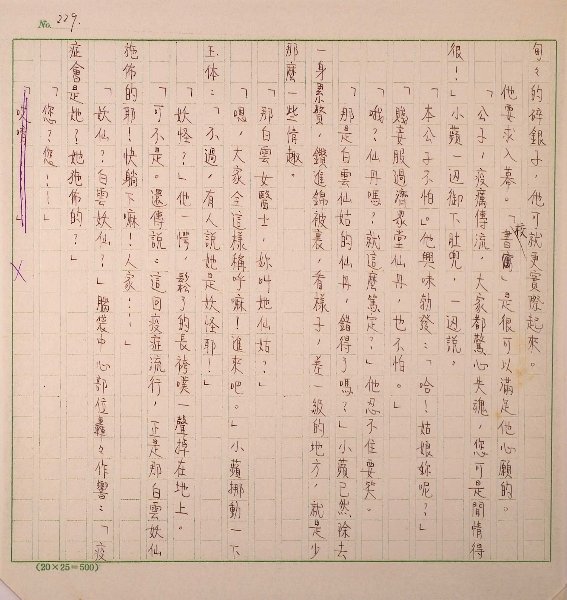 No. 229.
甸々的碎銀子，他可就更實際起來。
他要求入幕。「書寓」是很可以滿足他心願的。
校
「公子，疫癘傳流，大家都驚心失魂，您可是閒情得
很！」小蘋一邊卸下肚兜，一邊說。
「本公子不怕。」他興味勃發：「哈！姑娘妳呢？」
「賤妾服過濟眾堂仙丹，也不怕。」
「哦？仙丹嗎？就這麼篤定？」他忍不住要笑。
「那是白雲仙姑的仙丹，錯得了嗎？」小蘋已然除去
一身累贅，鑽進錦被裏，看樣子，差一級的地方，就是少
那麼一些情趣。
「那白雲女醫士，妳叫她仙姑？」
「嗯，大家全這樣稱呼嘛！進來吧。」小蘋挪動一下
玉体：「不過，有人說她是妖怪耶！」
「妖怪？」他一愕，鬆了的長袴噗一聲掉在地上。
「可不是。還傳說：這回疫症流行，正是那白雲妖仙
施佈的耶！快躺下嘛！人家……」
「妖仙？白雲妖仙？」腦袋中心部位轟々作響：「疫
症會是她？她施佈的？」
「您？您！」
(20×25=500)